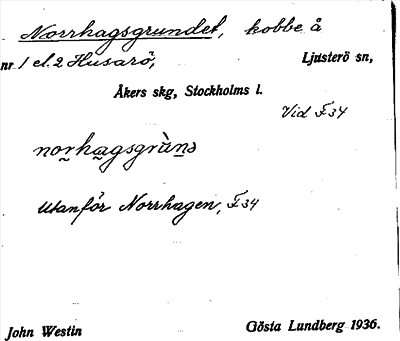 Norrhagsgrundet, kobbe å
nr 1 el. 2 Husarö, Ljusterö sn,
Åkers skg, Stockholms l.
Vid F34
norhagsgrùnd
Utanför Norrhagen, F34
John Westin Gösta Lundberg 1936.